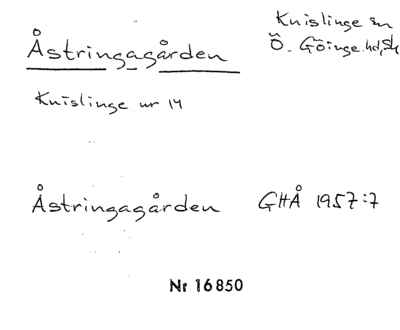 Åstringagården
Knislinge sn
Ö. Göinge hd, Sk
Knislinge nr 14
Åstringagården GHÅ 1957:7
Nr 16850